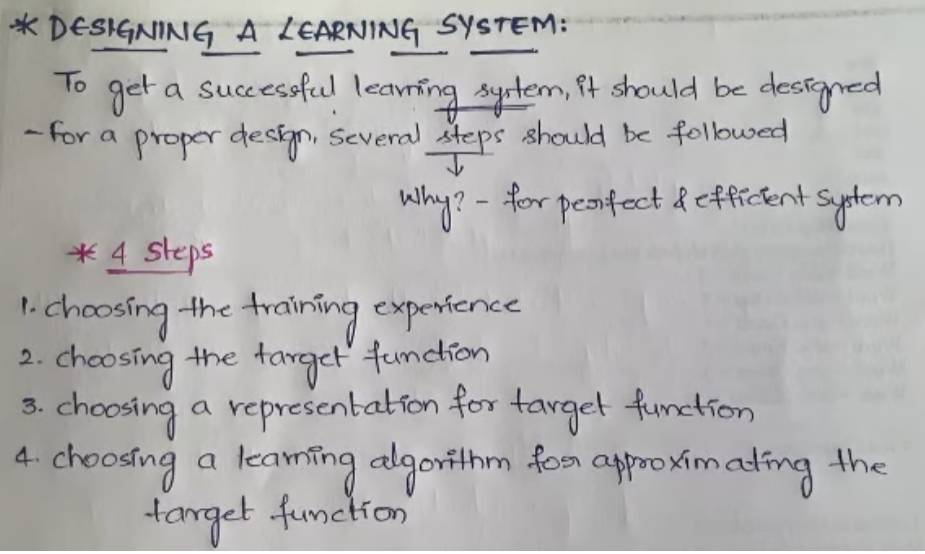 * DESIGNING A LEARNING SYSTEM:
To get a successful learning system, it should be designed
- for a proper design, several steps should be followed
↓
Why? - for perfect & efficient system
* 4 Steps
1. choosing the training experience
2. choosing the target function
3. choosing a representation for target function
4. choosing a learning algorithm for approximating the
target function